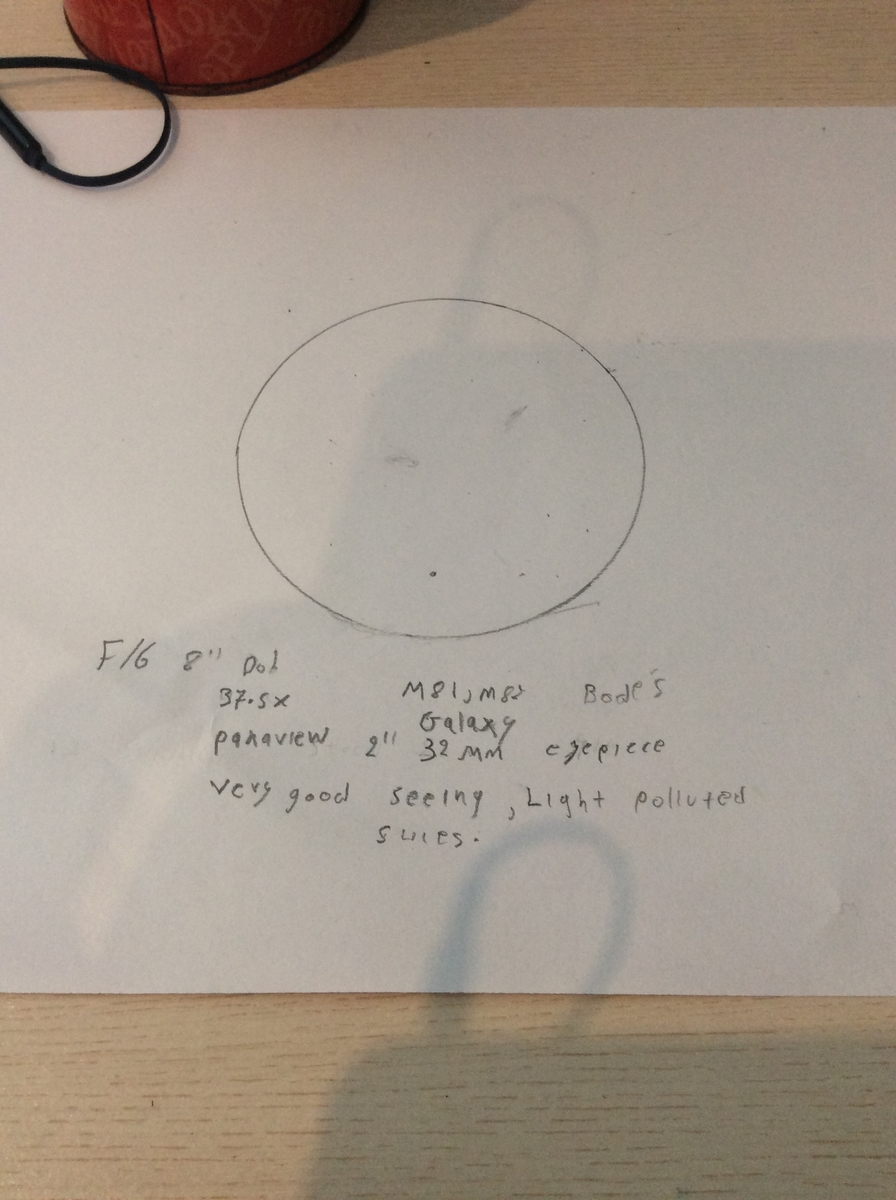 F/6 8" Dob
37.5x M81, M82 Bode's
Galaxy
panaview 2" 32mm eyepiece
Very good seeing, Light polluted
skies.